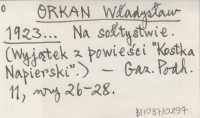 ORKAN Władysław
1923... Na sołtystwie.
(Wyjątek z powieści "Kostka
Napierski".) – Gaz. Podh.
11, nry 26-28.